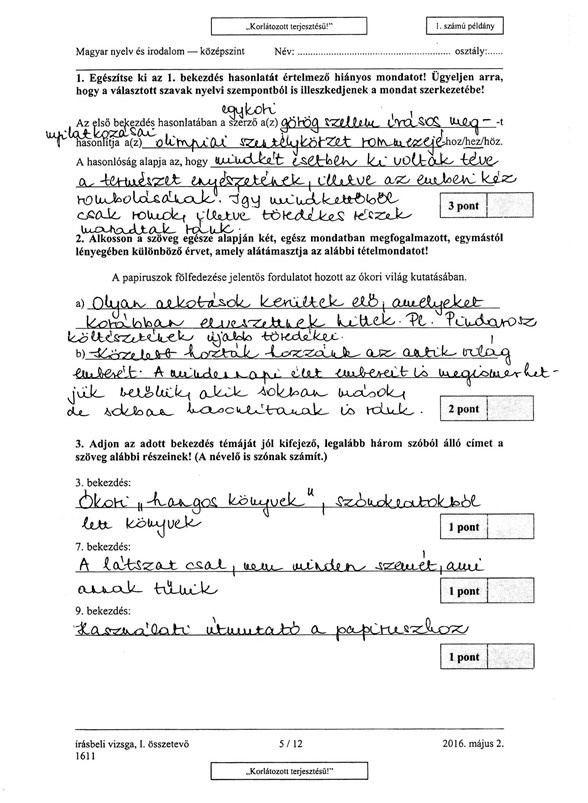 „Korlátozott terjesztésű!”
1. számú példány
Magyar nyelv és irodalom — középszint Név: ........................................................ osztály:......
1. Egészítse ki az 1. bekezdés hasonlatát értelmező hiányos mondatot! Ügyeljen arra,
hogy a választott szavak nyelvi szempontból is illeszkedjenek a mondat szerkezetébe!
egykori
Az első bekezdés hasonlatában a szerző a(z) görög szellem írásos meg- -t
nyilatkozásai
hasonlítja a(z) olimpiai szentélykörzet rommezejé-hoz/hez/höz.
A hasonlóság alapja az, hogy mindkét esetben ki voltak téve
a természet enyészetének, illetve az emberi kéz
rombolásának. Így mindkettőből
csak romok, illetve töredékes részek
maradtak ránk.
3 pont
2. Alkosson a szöveg egésze alapján két, egész mondatban megfogalmazott, egymástól
lényegében különböző érvet, amely alátámasztja az alábbi tételmondatot!
A papiruszok fölfedezése jelentős fordulatot hozott az ókori világ kutatásában.
a) Olyan alkotások kerültek elő, amelyeket
korábban elveszettnek hittek. Pl. Pindarosz
költészetének újabb töredékei.
b) Közelebb hozták hozzánk az antik világ
emberét. A mindennapi élet embereit is megismerhet-
jük belőlük, akik sokban mások,
de sokban hasonlítanak is ránk.
2 pont
3. Adjon az adott bekezdés témáját jól kifejező, legalább három szóból álló címet a
szöveg alábbi részeinek! (A névelő is szónak számít.)
3. bekezdés:
Ókori „hangos könyvek”, szónoklatokból
lett könyvek
1 pont
7. bekezdés:
A látszat csal, nem minden szemét, ami
annak tűnik
1 pont
9. bekezdés:
Használati útmutató a papiruszhoz
1 pont
írásbeli vizsga, I. összetevő 5 / 12 2016. május 2.
1611
„Korlátozott terjesztésű!”